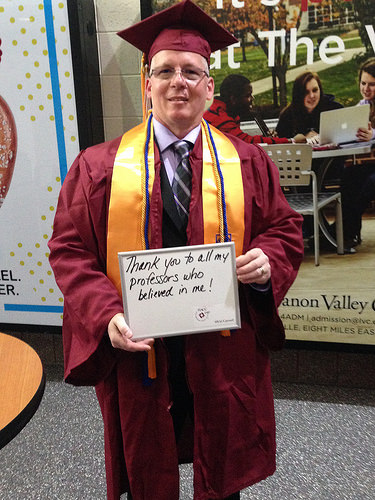 at The V
Thank you to all my
professors who
believed in me!
EL.
ER.
anon Valley C
4ADM | admission@lvc.e
LLE, EIGHT MILES EAS